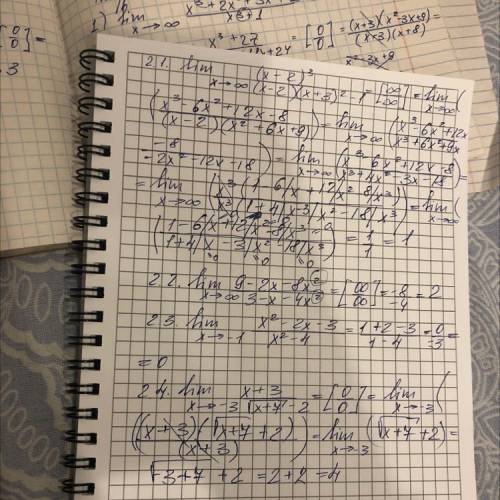 1) lim x→∞
x³+1
x³+27 = [0/0] = (x+3)(x²-3x+9)/(x+3)(x+8) =
x²-3x+9
[0/0] =
21. lim x→∞ (x-2)³/(x-2)(x+3)² - 1 = [∞/∞] = lim x→∞ (
(x³-6x²+12x-8/(x-2)(x²+6x+9)) = lim x→∞ (x³-6x²+12x
x³+6x²+9x
-8/-2x²-12x-18) = lim x→∞ (x³-6x²+12x-8/x³+4x²-3x-18) =
= lim x→∞ (x³(1-6/x+12/x²-8/x³)/x³(1+4/x-3/x²-18/x³)) = lim x→∞ (
(1-6/x+12/x²-8/x³/1+4/x-3/x²-18/x³) = 1/1 = 1
22. lim x→∞ 9-2x-8x²/3-x-4x² = [∞/∞] = -8/-4 = 2
23. lim x→-1 x²-2x-3/x²-4 = 1+2-3/1-4 = 0/-3 =
= 0
24. lim x→-3 x+3/√x+7-2 = [0/0] = lim x→-3 (
((x+3)(√x+7+2)/(x+3)) = lim x→-3 (√x+7+2) =
√-3+7+2 = 2+2 = 4